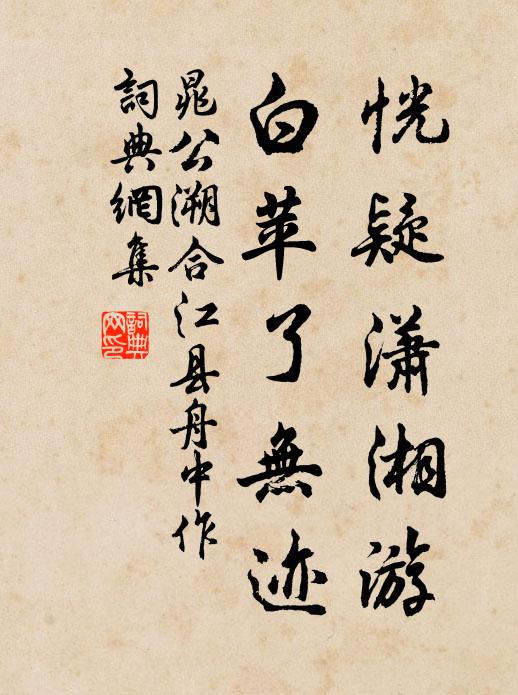 恍疑瀟湘游
白苹了無迹
晁公溯合江县舟中作
詞典網集
詞典网印